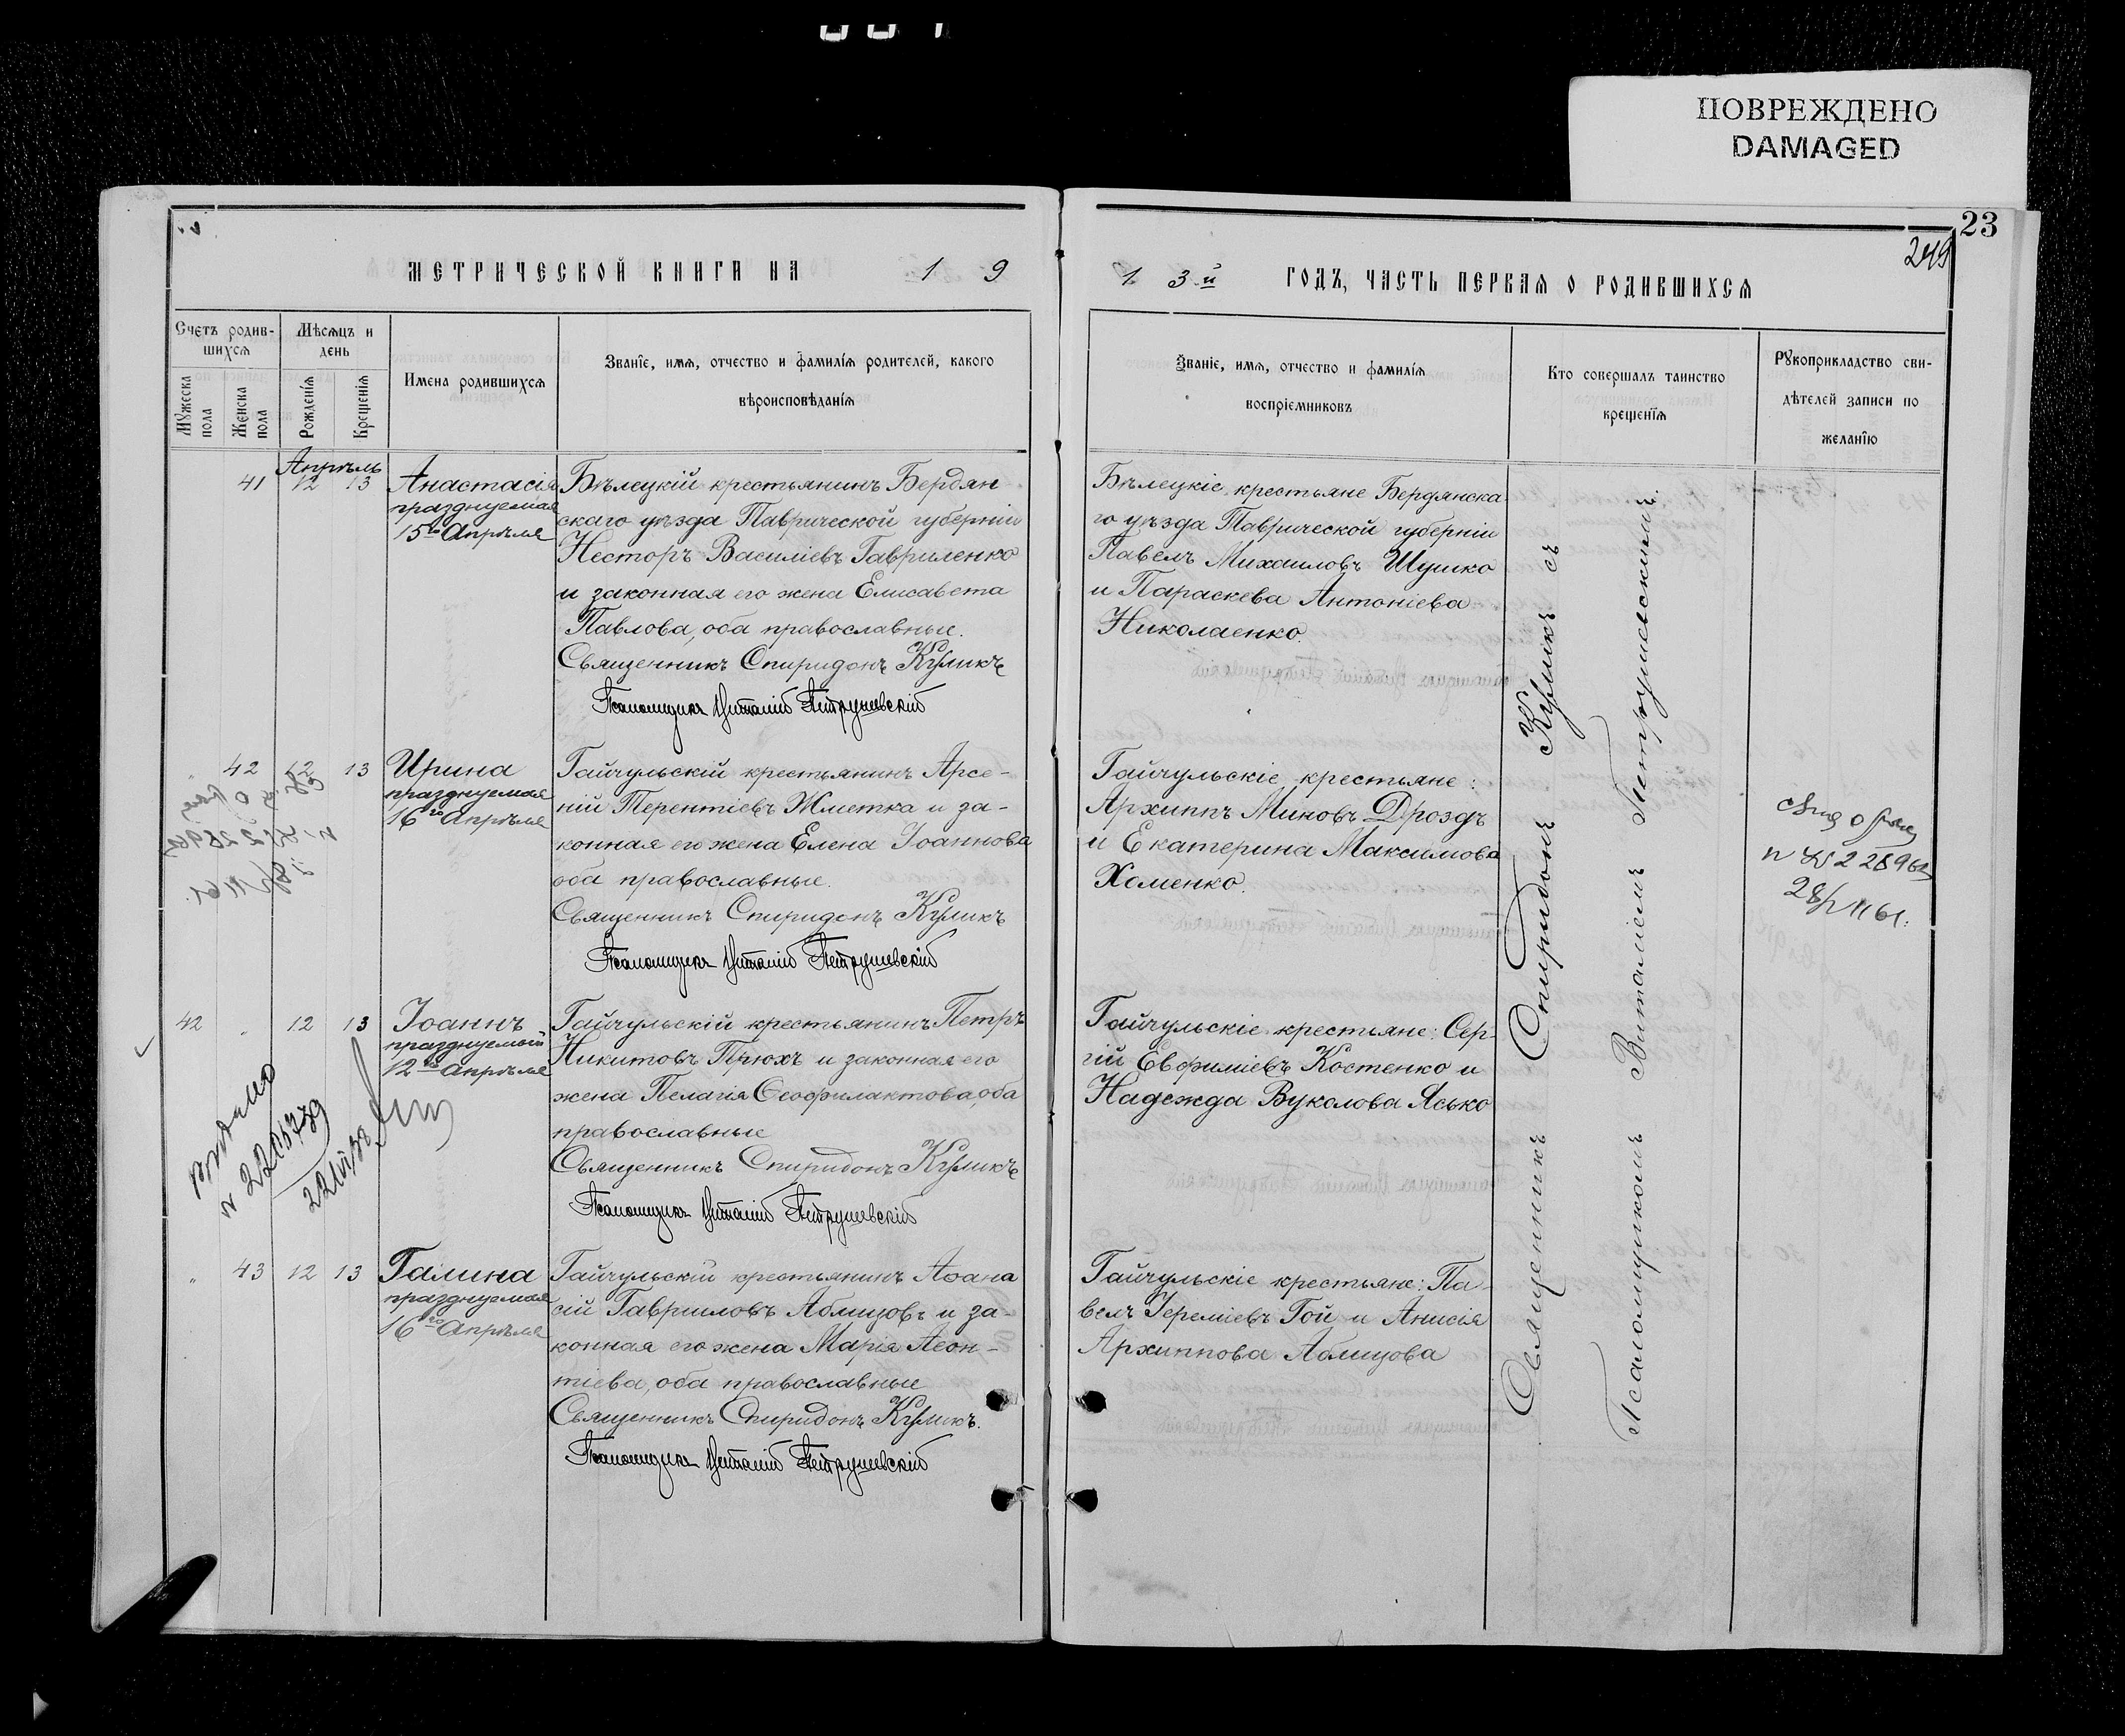 ПОВРЕЖДЕНО
DAMAGED
23
249
МЕТРИЧЕСКОЙ КНИГИ НА 1 9
1 3й ГОДЪ, ЧАСТЬ ПЕРВАЯ О РОДИВШИХСЯ
Счетъ родив-
шихся
Мужеска
пола
Женска
пола
Мѣсяцъ и
день
Рожденія
Крещенія
Имена родившихся
Званіе, имя, отчество и фамилія родителей, какого
вѣроисповѣданія
Званіе, имя, отчество и фамилія
воспріемниковъ
Кто совершалъ таинство
крещенія
Рукоприкладство сви-
дѣтелей записи по
желанію
Апрѣль
41 12 13
Анастасія
празднуемая
15го Апрѣля
Бѣлецкій крестьянинъ Бердян
скаго уѣзда Таврической губерніи
Несторъ Василіевъ Гавриленко
и законная его жена Елисавета
Павлова, оба православные.
Священникъ Спиридонъ Куликъ
Псаломщикъ Виталій Петрушевскій
Бѣлецкіе крестьяне Бердянска
го уѣзда Таврической губерніи
Павелъ Михаиловъ Шушко
и Параскева Антоніева
Николаенко.
" 42 12 13
Ирина
празднуемая
16го Апрѣля
Гайчульскій крестьянинъ Арсе-
ній Терентіевъ Жметка и за-
конная его жена Елена Іоаннова
оба православные.
Священникъ Спиридонъ Куликъ
Псаломщикъ Виталій Петрушевскій
Гайчульскіе крестьяне:
Архиппъ Миновъ Дроздъ
и Екатерина Максимова
Хоменко.
42 " 12 13
Іоаннъ
празднуемый
12го Апрѣля
Гайчульскій крестьянинъ Петръ
Никитовъ Прюхъ и законная его
жена Пелагія Ѳеофилактова, оба
православные
Священникъ Спиридонъ Куликъ
Псаломщикъ Виталій Петрушевскій
Гайчульскіе крестьяне: Сер-
гій Евфиміевъ Костенко и
Надежда Вуколова Ясько
" 43 12 13
Галина
празднуемая
16го Апрѣля
Гайчульскій крестьянинъ Аѳана
сій Гавриловъ Аблицовъ и за-
конная его жена Марія Леон-
тіева, оба православные
Священникъ Спиридонъ Куликъ.
Псаломщикъ Виталій Петрушевскій
Гайчульскіе крестьяне: Па-
велъ Іереміевъ Гой и Анисія
Архиппова Аблицова
Священникъ Спиридонъ Куликъ съ
Псаломщикомъ Виталіемъ Петрушевскимъ.